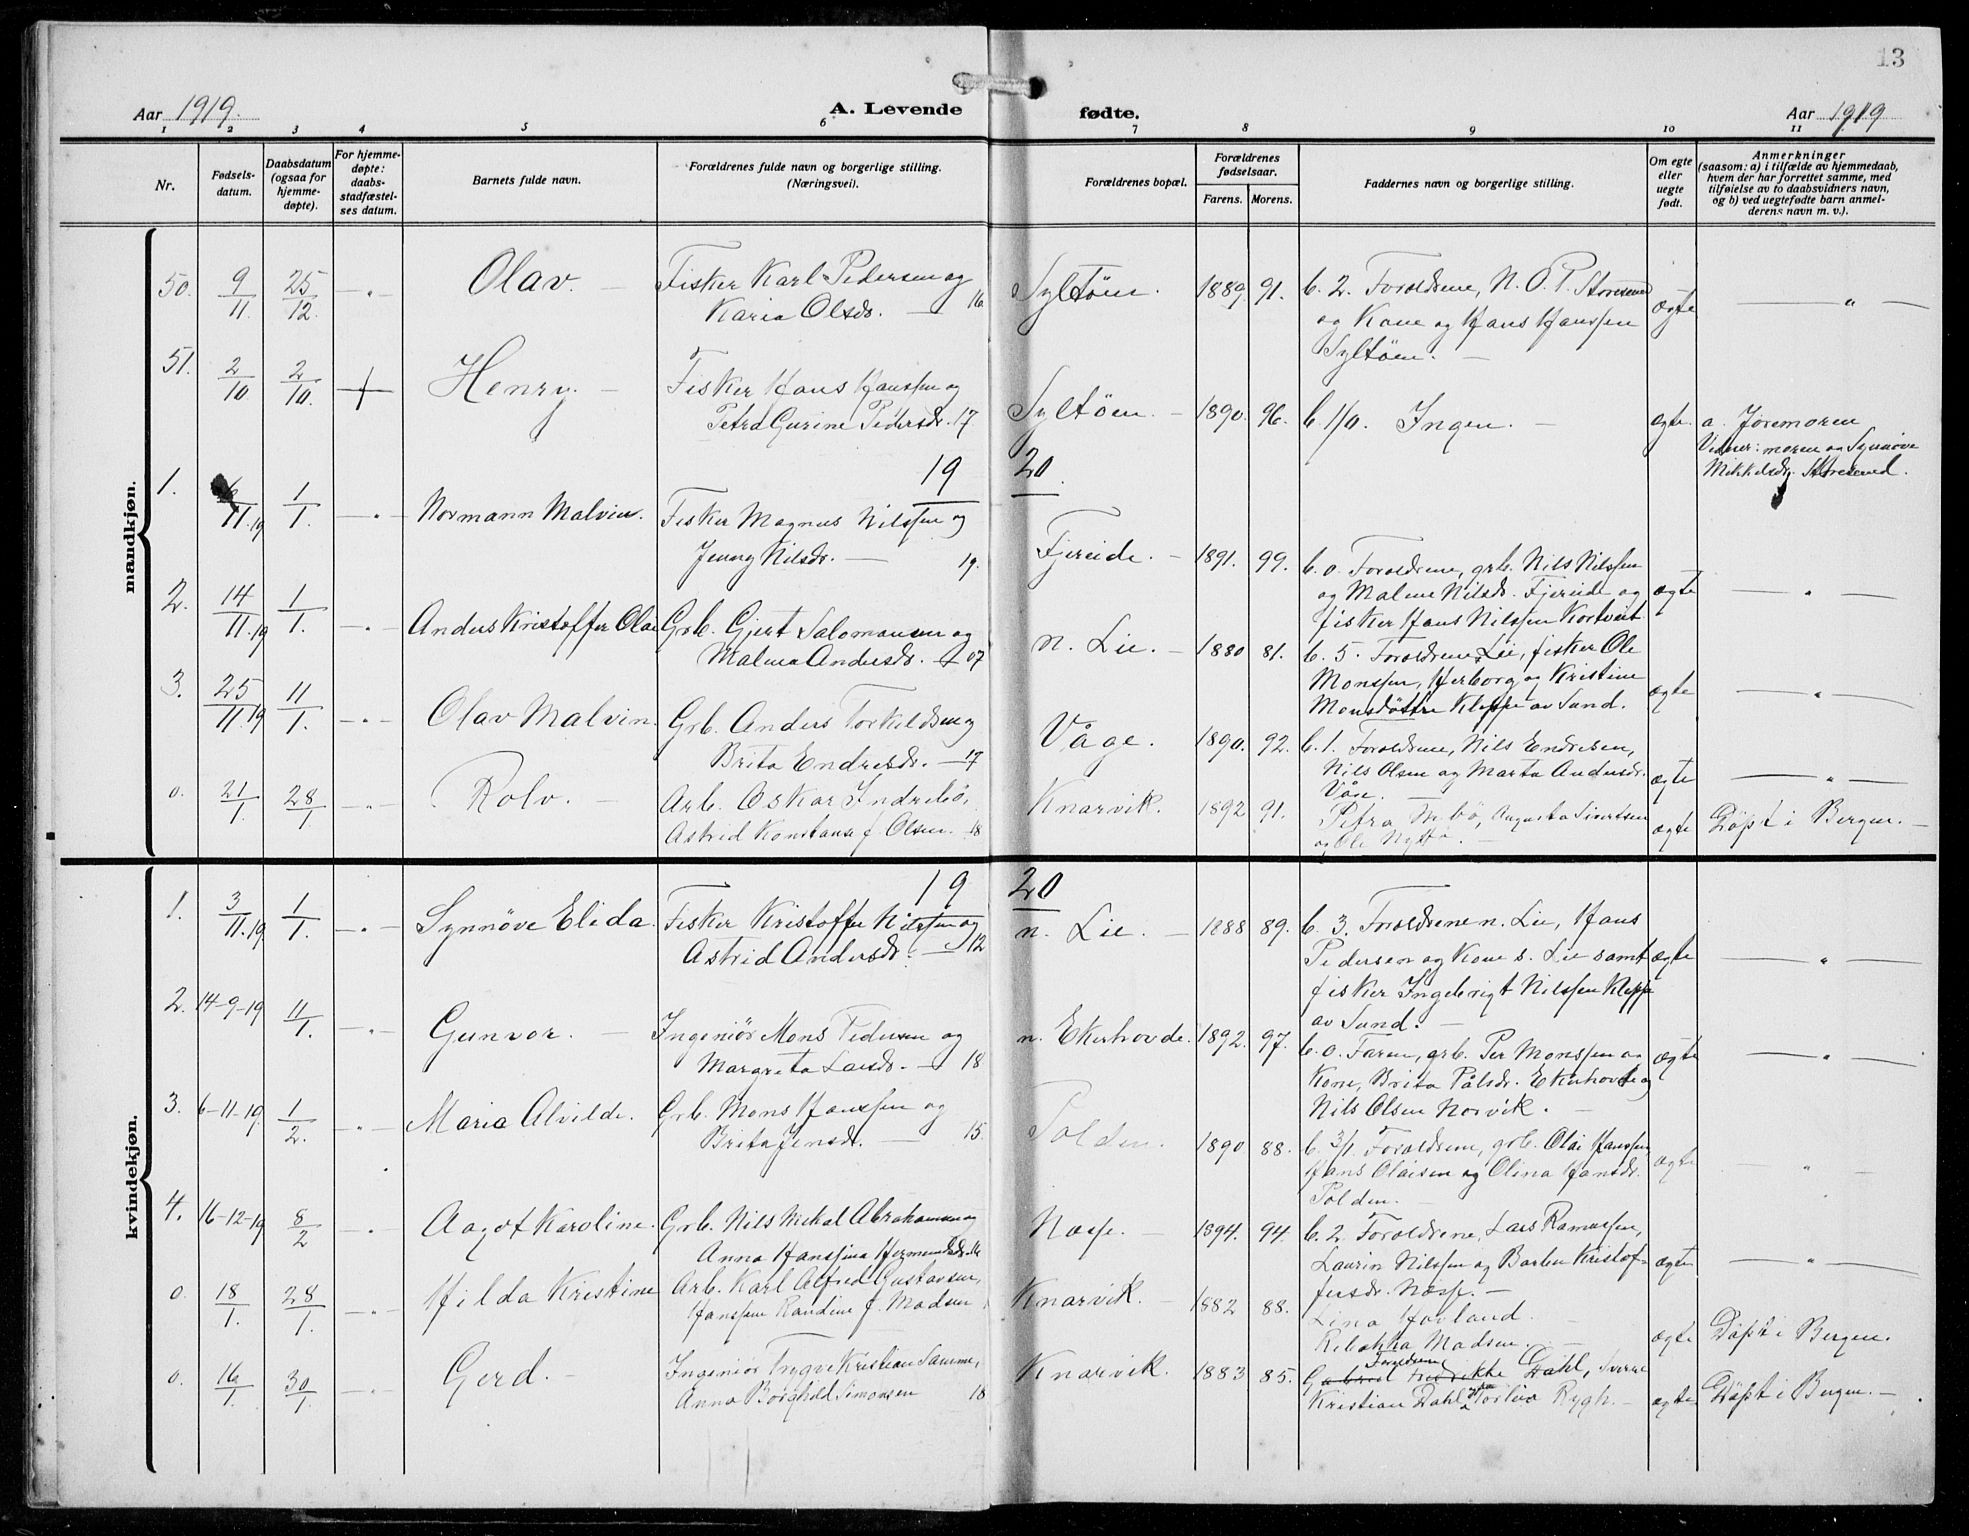 13
Aar 1919.
A. Levende fødte.
Aar 1919
1 2 3 4 5 6 7 8 9 10 11
Nr.
Fødsels-
datum.
Daabsdatum
(ogsaa for
hjemme-
døpte).
For hjemme-
døpte:
daabs-
stadfæstel-
ses datum.
Barnets fulde navn.
Forældrenes fulde navn og borgerlige stilling.
(Næringsvei).
Forældrenes bopæl.
Forældrenes
fødselsaar.
Farens. Morens.
Faddernes navn og borgerlige stilling.
Om egte
eller
uegte
født.
Anmerkninger
(saasom: a) i tilfælde av hjemmedaab,
hvem der har forrettet samme, med
tilføielse av to daabsvidners navn,
og b) ved uegtefødte barn anmel-
derens navn m. v.).
mandkjøn.
50. 9/11. 25/12. Olav. Fisker Karl Pedersen og
Karia Olsdr. 16. Syltöen. 1889. 91. b. 2. Foroldrene, N. O. P. Storesund
og Kone og Hans Hanssen
Syltöen. ægte
51. 2/10 2/10. + Henry. Fisker Hans Hanssen og
Petra Gurine Pedersdr. 17 Syltöen. 1890. 96. b. 1/0. Ingen. egte. a. Joremoren
Vidner: moren og Synnöve
Mikkelsdr. Storesund.
19 20
1. 11.19 1/1. Normann Malvin. Fisker Magnus Nilssen og
Jenny Nilsdr. 19. Fjereide. 1891. 99. b. 0. Foroldrene, grb. Nils Nilssen
og Malene Nilsdr. Fjereide og
fisker Hans Nilssen Kortveit. ægte
2. 14/11.19 1/1. Anders Kristoffer Olai Grb. Gjert Salomonsen og
Malena Andersdr. 07 n. Lie. 1880 81. b. 5. Foroldrene Lie, fisker Ole
Monssen, Herborg og Kristine
Monsdöttre Kleppe av Sund. ægte
3. 25/11.19 11/1. Olav Malvin. Grb. Anders Torkildsen og
Brita Endresdr. 17 Våge. 1890. 92. b. 1. Foroldrene, Nils Endresen,
Nils Olsen og Marta Andersdr.
Våge. ægte
0. 21/1. 28/1 Rolv. Arb. Oskar Indrebö,
Astrid Konstanse f. Olsen. 18 Knarvik. 1892 91. Petra, Augusta Sivertsen
og Ole. ægte Döpt i Bergen.
kvindekjøn.
19 20
1. 3/11.19 1/1. Synnöve Elida. Fisker Kristoffer Nilssen og
Astrid Andersdr. 12 n. Lie. 1888 89. b. 3. Foroldrene n. Lie, Hans
Pedersen og Kone s. Lie samt
fisker Ingebrigt Nilssen Kleppe
av Sund. ægte
2. 14-9-19 11/1. Gunvor. Ingeniör Mons Pedersen og
Margreta Larsdr. 18 n. Ekerhovde. 1892. 97. b. 0. Faren, grb. Per Monssen og
Kone, Brita Pålsdr. Ekerhovde og
Nils Olsen Norvik. ægte
3. 6-11-19. 1/2. Maria Alvilde. Grb. Mons Hanssen og
Brita Jensdr. 15. Polden. 1890 88. b. 3/1. Foroldrene, grb. Olai Hanssen
Hans Olaisen og Olina Hansdr.
Polden. ægte
4. 16-12-19 8/2 Aagot Karoline. Grb. Nils Mikal Abrahamsen og
Anna Hanssina Hermundsdr. 16 Nesse. 1894. 94. b. 2. Foroldrene, Lars Ramussen,
Laurin Nilssen og Barbra Kristof-
fersdr. Nesse. ægte
0. 18/1. 28/1. Hilda Kristine Arb. Karl Alfred Gustavsen,
Hanssen Randine f. Madsen Knarvik. 1882 88. Lina Hovland.
Rebekka Madsen. ægte Döpt i Bergen.
0. 16/1. 30/1. Gerd. Ingeniör Trygve Kristian Samme,
Anna Borghild Simonsen 18 Knarvik. 1883 85. Foroldrene Dahl, Sverre
Kristian Dahl og Torleiv Rygh. ægte Döpt i Bergen.